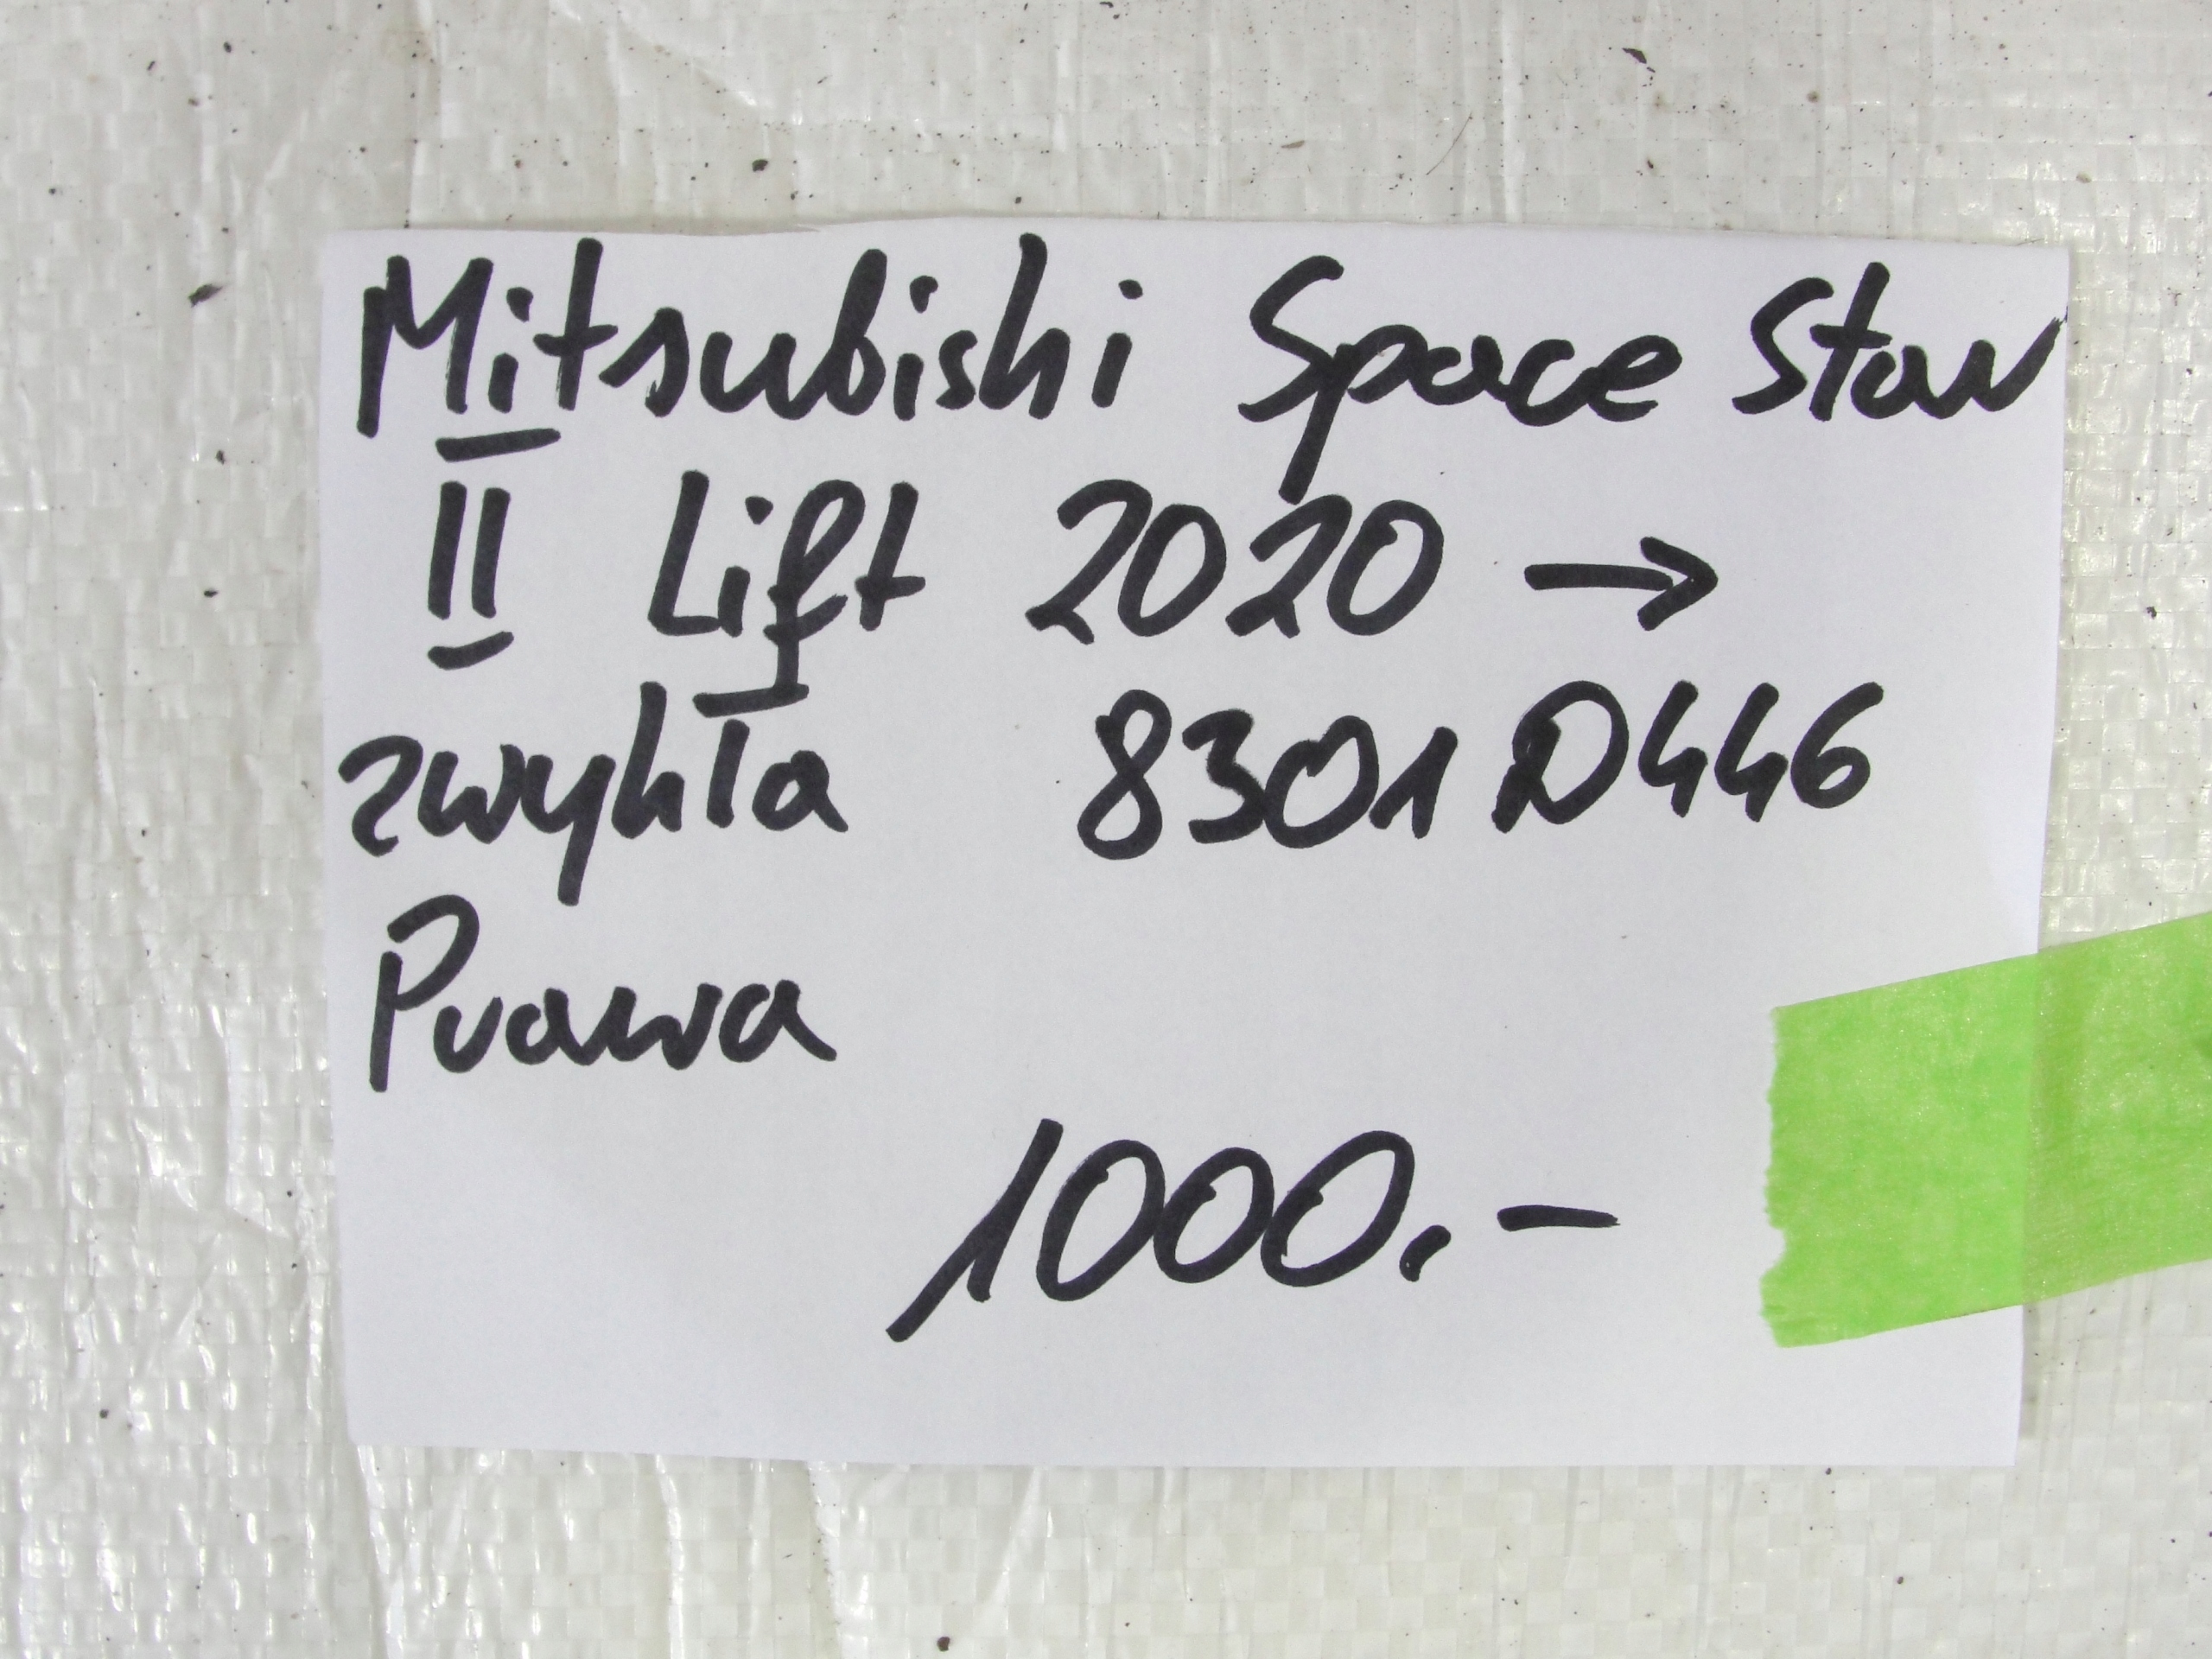 Mitsubishi Space Star
II Lift 2020 →
zwykła 8301D446
Prawa
1000.-